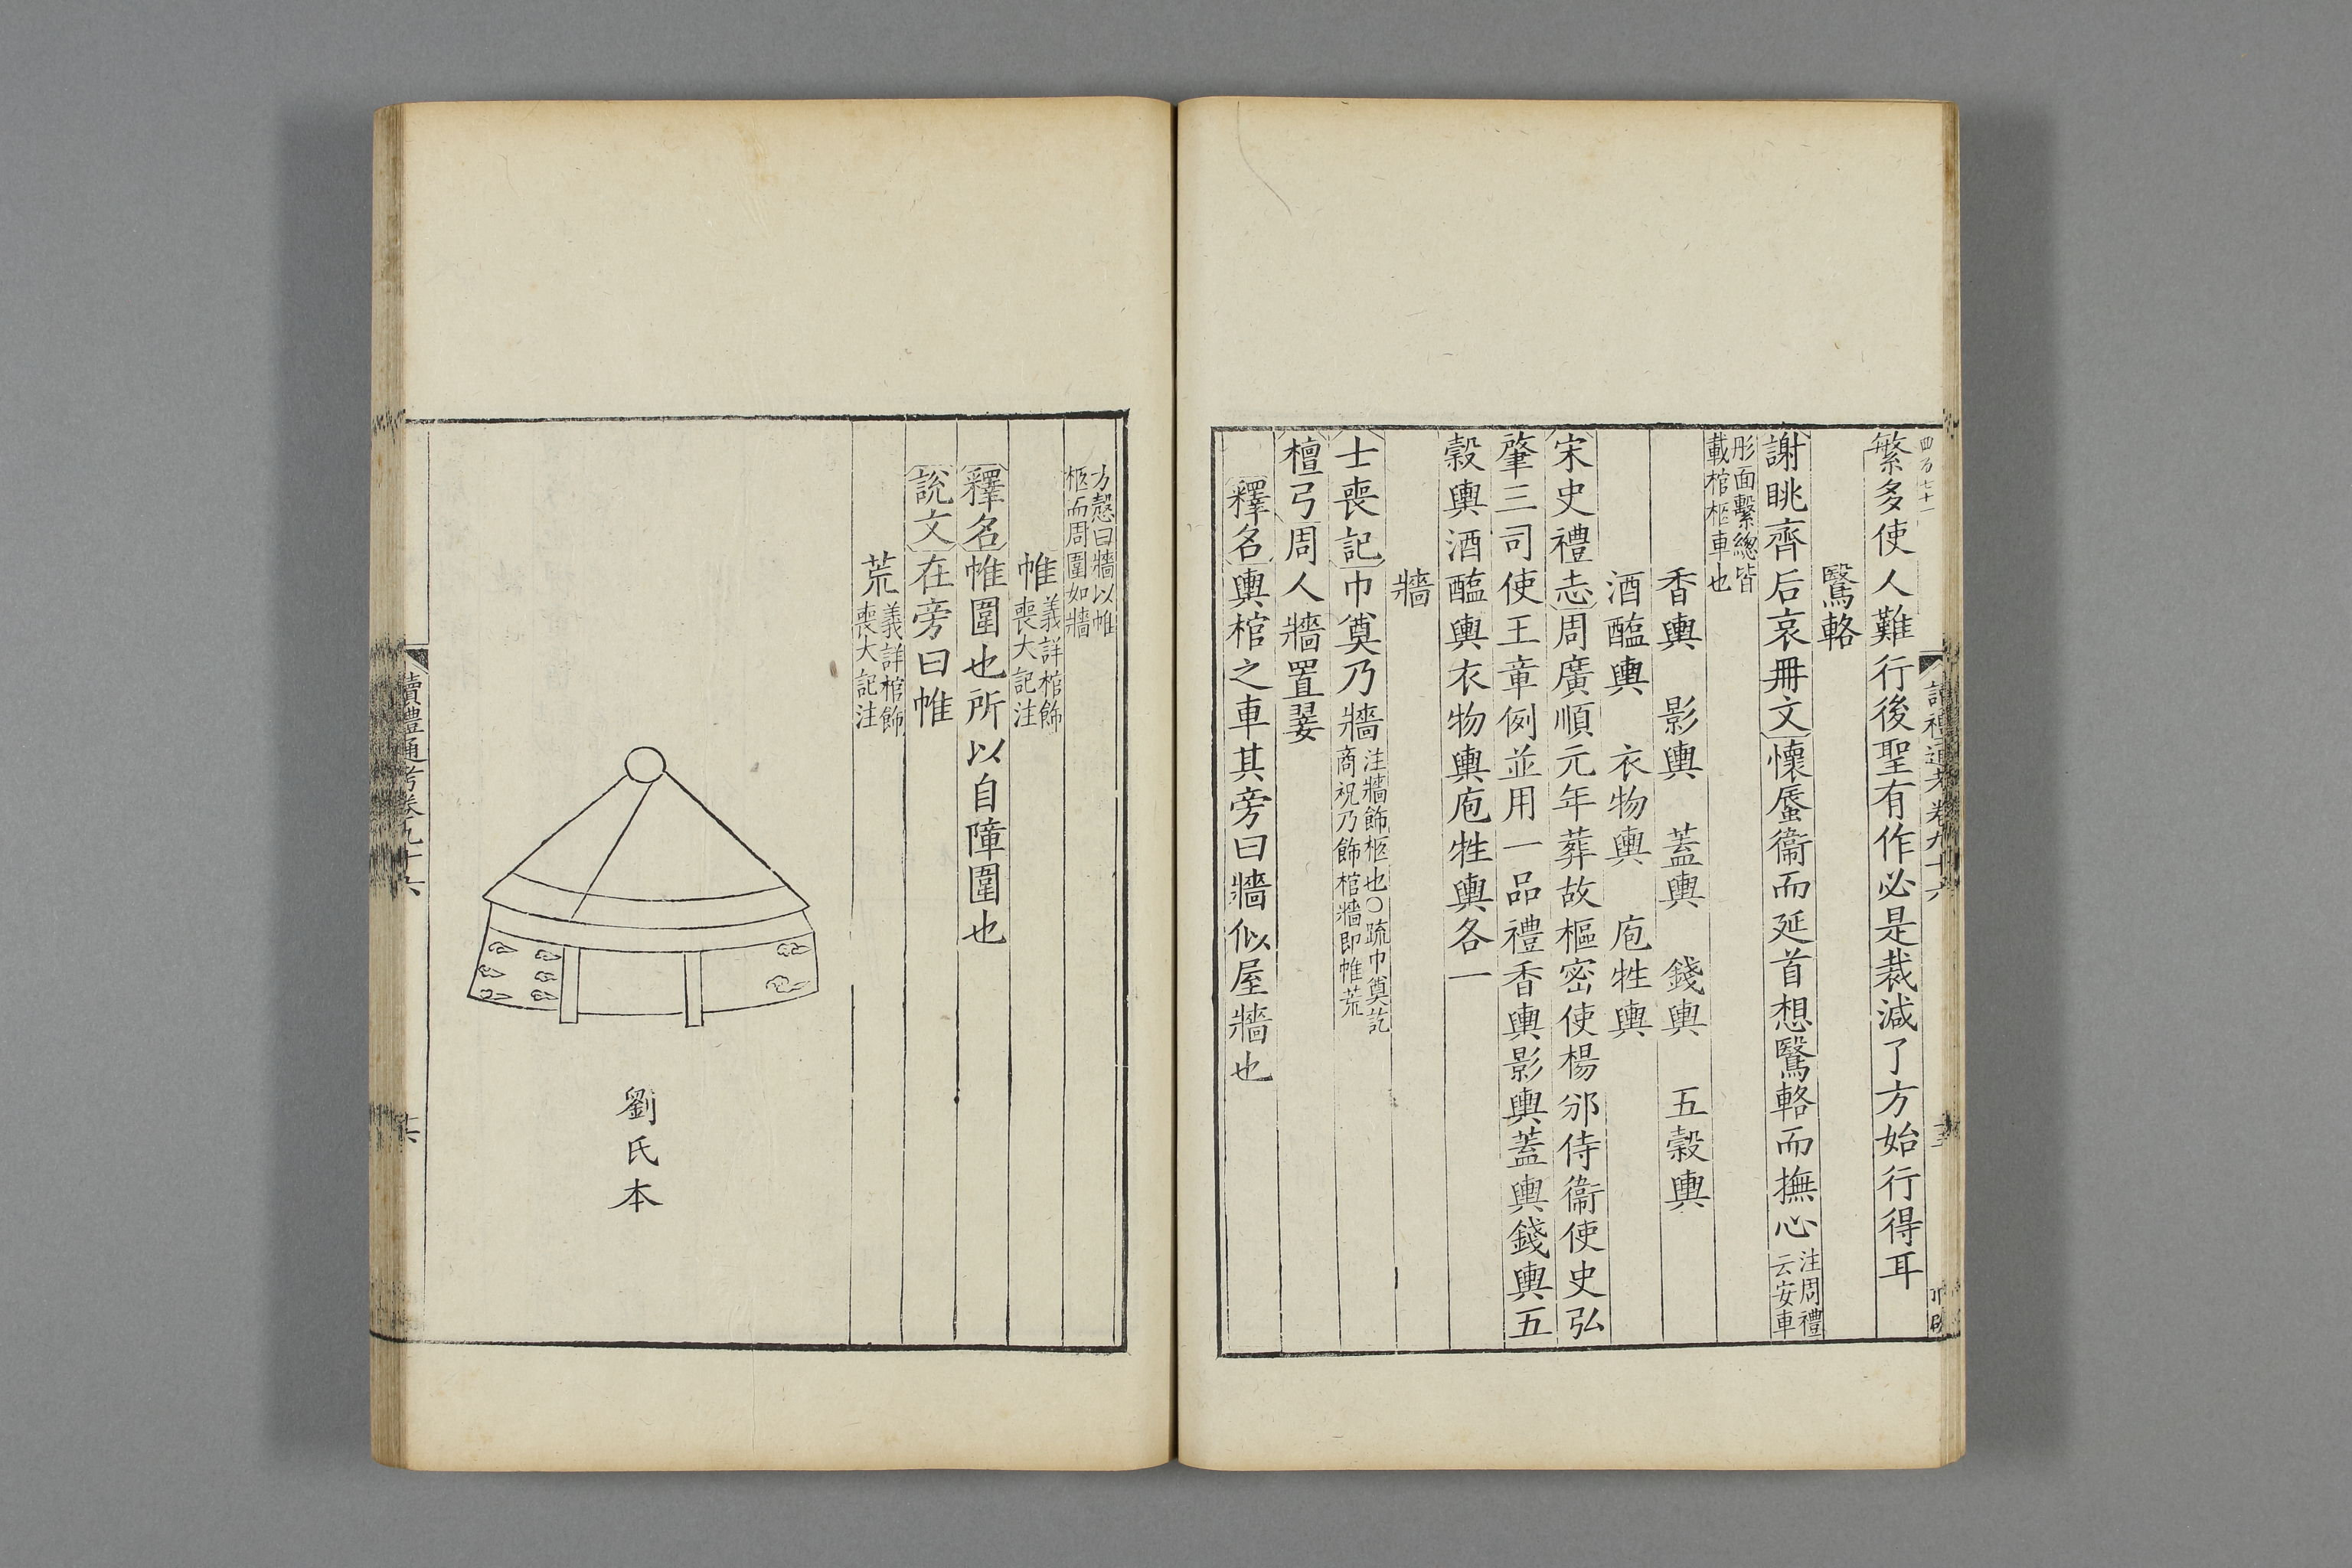 四百七十一
繁多使人難行後聖有作必是裁減了方始行得耳
鷖輅
謝眺齊后哀冊文懷蜃衞而延首想鷖輅而撫心注周禮云安車
彤面繫總皆載棺柩車也
香輿　影輿　蓋輿　錢輿　五穀輿
酒醢輿　衣物輿　庖牲輿
宋史禮志周廣順元年葬故樞密使楊邠侍衞使史弘
肇三司使王章例並用一品禮香輿影輿蓋輿錢輿五
穀輿酒醢輿衣物輿庖牲輿各一
牆
士喪記巾奠乃牆注牆飾柩也○疏巾奠訖商祝乃飾棺牆即帷荒
檀弓周人牆置翣
釋名輿棺之車其旁曰牆似屋牆也
讀禮通考卷九十六
方慤曰牆以帷柩而周圍如牆
帷義詳棺飾喪大記注
釋名帷圍也所以自障圍也
說文在旁曰帷
荒義詳棺飾喪大記注
劉氏本
讀禮通考卷九十六